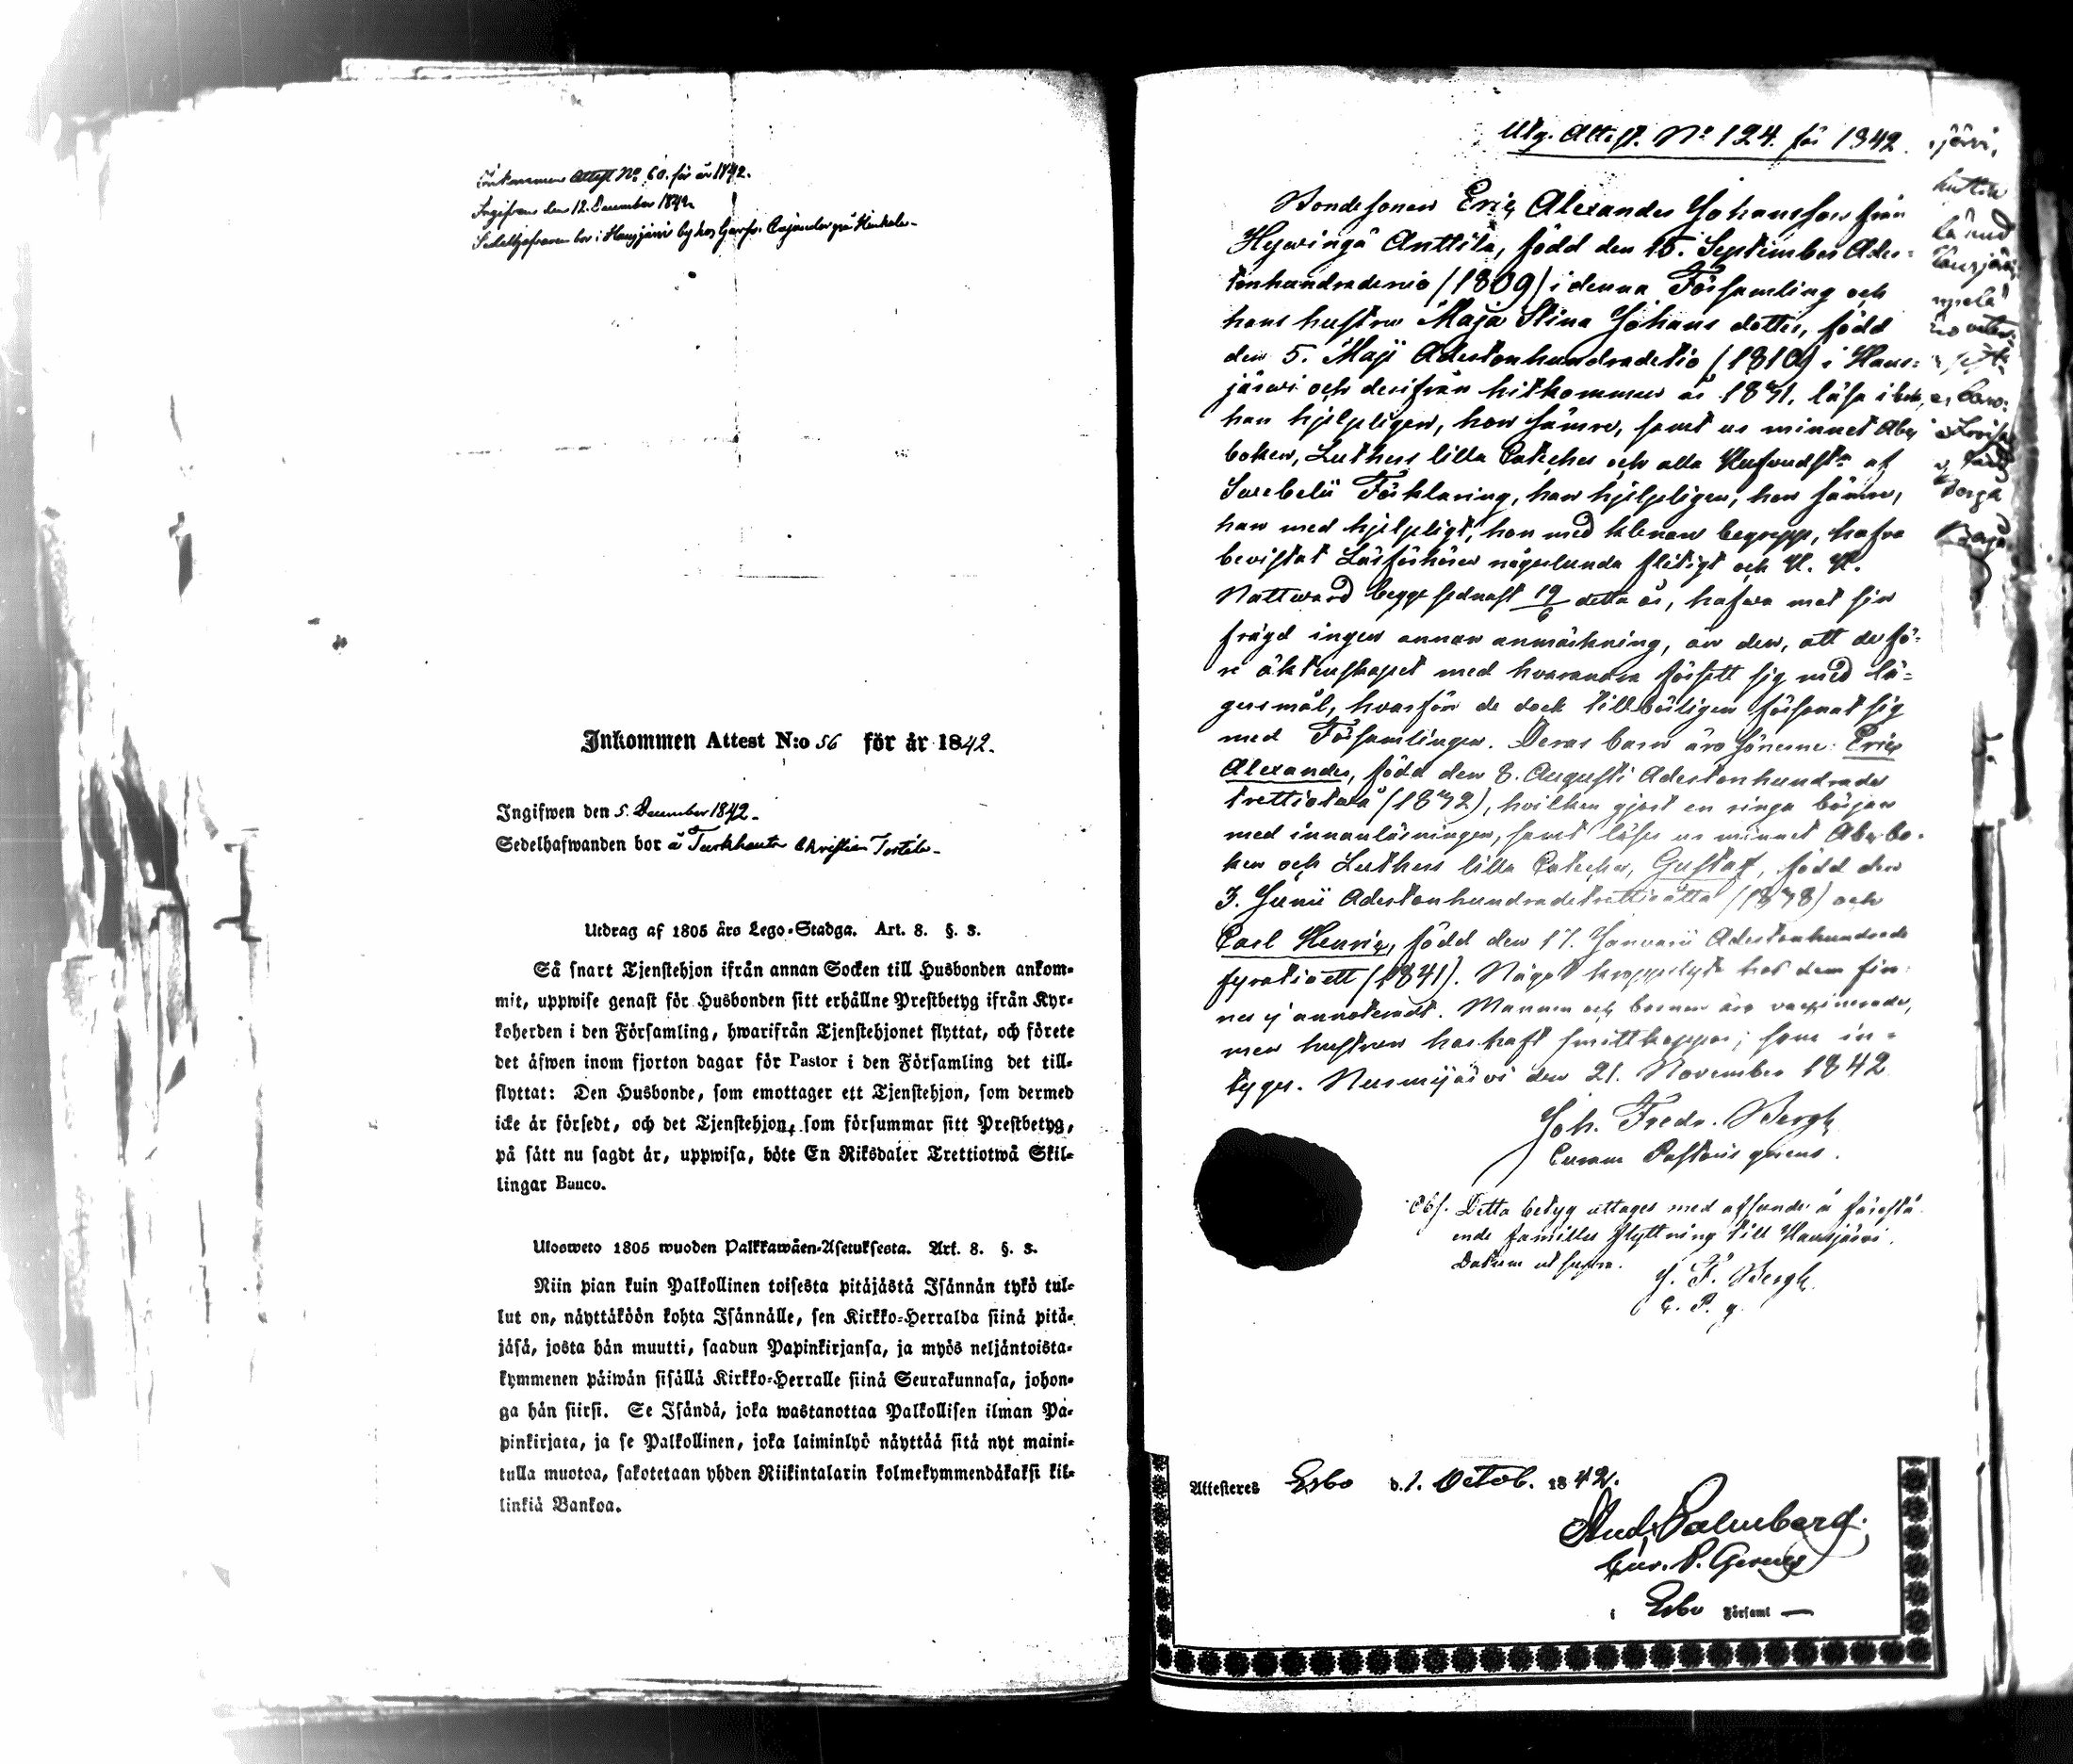 Inkommen Attest No 60. för år 1842.
Ingifven den 12. December 1842.
Sedelhafvanden bor i Hausjärvi by hos på
Inkommen Attest N:o 56 för år 1842.
Ingifwen den 5. December 1842.
Sedelhafwanden bor å Turkhauta Christian
Utdrag af 1805 års Lego-Stadga. Art. 8. §. 3.
Så snart Tjenstehjon ifrån annan Socken till Husbonden ankom-
mit, uppwise genast för Husbonden sitt erhållne Prestbetyg ifrån Kyr-
koherden i den Församling, hwarifrån Tjenstehjonet flyttat, och förete
det äfwen inom fjorton dagar för Pastor i den Församling det till-
flyttat: Den Husbonde, som emottager ett Tjenstehjon, som dermed
icke är försedt, och det Tjenstehjon, som försummar sitt Prestbetyg,
på sätt nu sagdt är, uppwisa, böte En Riksdaler Trettiotwå Skil-
lingar Banco.
Ulosweto 1805 wuoden Palkkawäen-Asetuksesta. Art. 8. §. 3.
Niin pian kuin Palkollinen toisesta pitäjästä Isännän tykö tul-
lut on, näyttäköön kohta Isännälle, sen Kirkko-Herralda siinä pitä-
jäsä, josta hän muutti, saadun Papinkirjansa, ja myös neljäntoista-
kymmenen päiwän sisällä Kirkko-Herralle siinä Seurakunnasa, johon-
ga hän siirsi. Se Isändä, joka wastanottaa Palkollisen ilman Pa-
pinkirjata, ja se Palkollinen, joka laiminlyö näyttää sitä nyt maini-
tulla muotoa, sakotetaan yhden Riikintalarin kolmekymmendäkaksi kil-
linkiä Bankoa.
Utg. Attest. No 124. för 1842.
Bondesonen Eric Alexander Johansson från
Hyvingä Anttila, född den 15. September Ader-
tonhundradenio (1809) i denna Församling och
hans hustru Maja Stina Johans dotter, född
den 5. Maji Adertonhundradetio (1810) i Haus-
järvi och derifrån hitkommen år 1831, läsa i bok,
han hjelpligen, hon sämre, samt ur minnet Abc
boken, Luthers lilla Cateches och alla Hufvudst:n af
Svebelii Förklaring, han hjelpligen, hon sämre,
han med hjelpligt, hon med klenare begrepp, hafva
bevistat Läsförhören någorlunda flitigt och H. H.
Nattvard begge sednast 19/6 detta år, hafva mot sin
frägd ingen annan anmärkning, än den, att de fö-
re äktenskapet med hvarandra försett sig med lä-
gersmål, hvarför de dock tillbörligen försonat sig
med Församlingen. Deras barn äro sönerne: Eric
Alexander, född den 8. Augusti Adertonhundrade
trettiotvå (1832), hvilken gjort en ringa början
med innanläsningen, samt läser ur minnet Abcbo-
ken och Luthers lilla Cateches, Gustaf, född den
3. Junii Adertonhundradetrettioåtta (1838) och
Carl Henric, född den 17. Januarii Adertonhundrade
fyratioett (1841). Något kroppslyte hos dem fin-
nes ej annoteradt. Mannen och barnen äro vaccinerade,
men hustrun har haft smittkoppor; som in-
tygas. Nurmijärvi den 21. November 1842
Joh. Fredr. Bergh
Curam Pastoris gerens.
Obs. Detta betyg uttages med afseende å förestå-
ende familles flyttning till Hausjärvi.
Datum ut supra.
J. F. Bergh.
C. P. g.
Attesteres Esbo d. 1. Octob. 1842.
And. Palmberg.
Cur. P. Gerens
i Esbo Församl